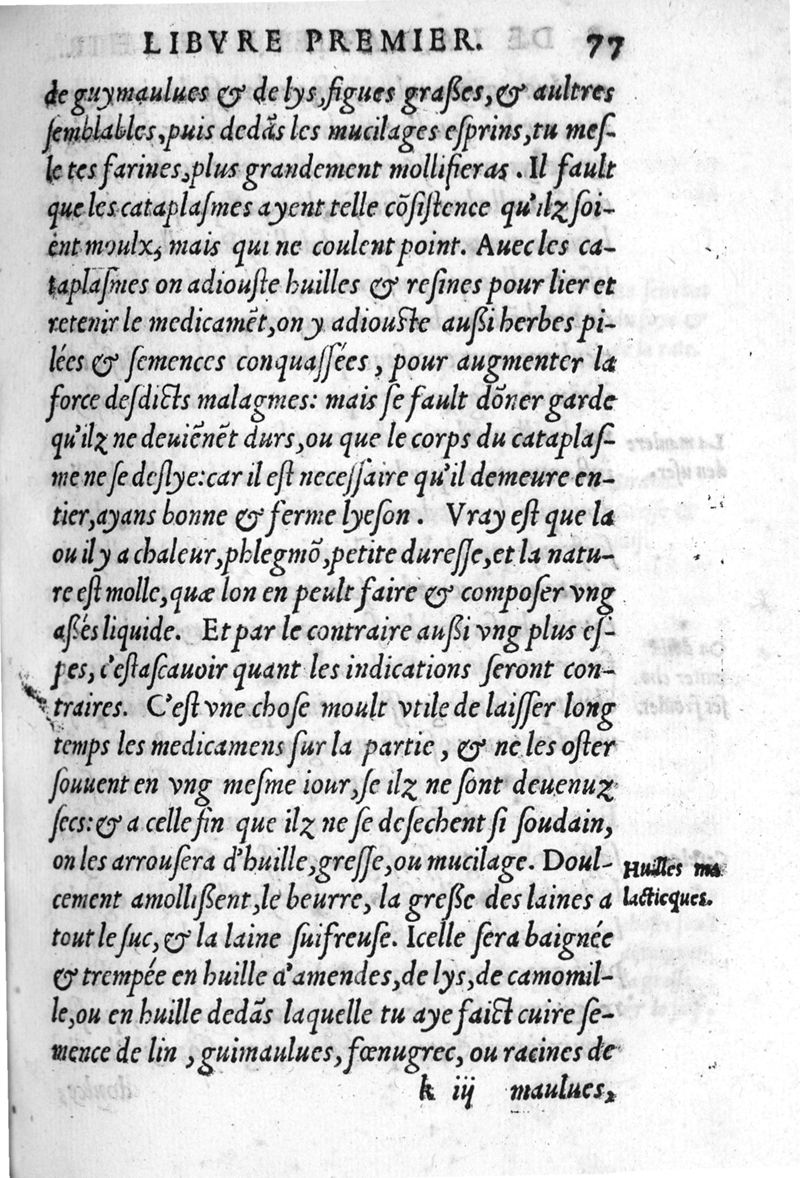 LIBVRE PREMIER. 77
de guymaulues & de lys, figues graſſes, & aultres
ſemblables, puis dedãs les mucilages eſprins, tu meſ-
le tes farines, plus grandement mollifieras. Il fault
que les cataplaſmes ayent telle cõſiſtence qu'ilz ſoi-
ent moulx, mais qui ne coulent point. Auec les ca-
taplaſmes on adiouſte huilles & reſines pour lier et
retenir le medicamẽt, on y adiouſte auſſi herbes pi-
lées & ſemences conquaſſées, pour augmenter la
force deſdicts malagmes: mais ſe fault dõner garde
qu'ilz ne deuiẽnẽt durs, ou que le corps du cataplaſ-
me ne ſe deſlye: car il eſt neceſſaire qu'il demeure en-
tier, ayans bonne & ferme lyeſon. Vray eſt que la
ou il y a chaleur, phlegmõ, petite dureſſe, et la natu-
re eſt molle, quæ lon en peult faire & compoſer vng
aſſés liquide. Et par le contraire auſſi vng plus eſ-
pes, c'eſtaſcauoir quant les indications ſeront con-
traires. C'eſt vne choſe moult vtile de laiſſer long
temps les medicamens ſur la partie, & ne les oſter
ſouuent en vng meſme iour, ſe ilz ne ſont deuenuz
ſecs: & a celle fin que ilz ne ſe deſechent ſi ſoudain,
on les arrouſera d'huille, greſſe, ou mucilage. Doul-
cement amolliſſent, le beurre, la greſſe des laines a
tout le ſuc, & la laine ſuifreuſe. Icelle ſera baignée
& trempée en huille d'amendes, de lys, de camomil-
le, ou en huille dedãs laquelle tu aye faict cuire ſe-
mence de lin, guimaulues, fœnugrec, ou racines de
k iij maulues,
Huilles ma
lacticques.